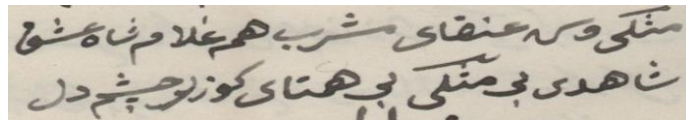 متکی وس عنقای مشرب هم غلام شاه عشق
شاهدی بی متکی بی همتای کوزلو چشم دل